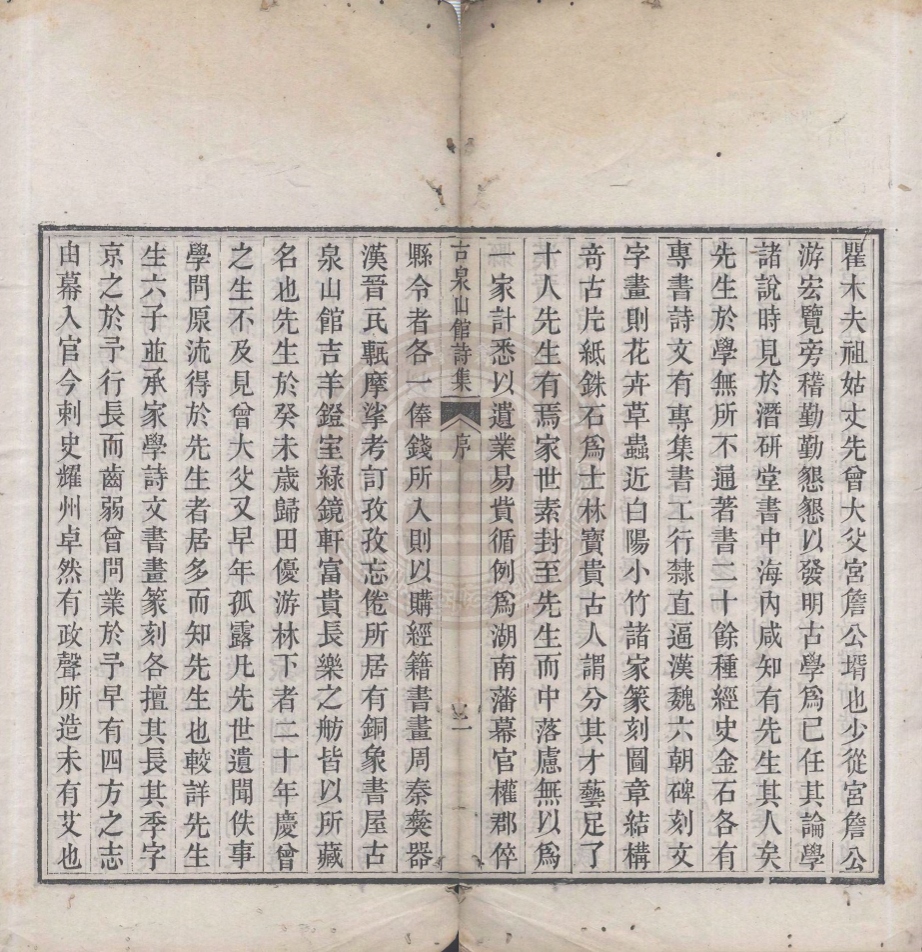 瞿木夫祖姑丈先曾大父宮詹公壻也少從宮詹公
游宏覽旁稽勤勤懇懇以發明古學爲己任其論學
諸說時見於潛研堂書中海內咸知有先生其人矣
先生於學無所不通著書二十餘種經史金石各有
專書詩文有專集書工行隸直逼漢魏六朝碑刻文
字畫則花卉草蟲近白陽小竹諸家篆刻圖章結構
奇古片紙銖石爲士林寶貴古人謂分其才藝足了
十人先生有焉家世素封至先生而中落慮無以爲
一家計悉以遺業易貲循例爲湖南藩幕官權郡倅
古泉山館詩集 序 二
縣令者各一俸錢所入則以購經籍書畫周秦彝器
漢晉瓦甎摩挲考訂孜孜忘倦所居有銅象書屋古
泉山館吉羊鐙室綠鏡軒富貴長樂之舫皆以所藏
名也先生於癸未歲歸田優游林下者二十年慶曾
之生不及見曾大父又早年孤露凡先世遺聞佚事
學問原流得於先生者居多而知先生也較詳先生
生六子並承家學詩文書畫篆刻各擅其長其季字
京之於予行長而齒弱曾問業於予早有四方之志
由幕入官今刺史耀州卓然有政聲所造未有艾也